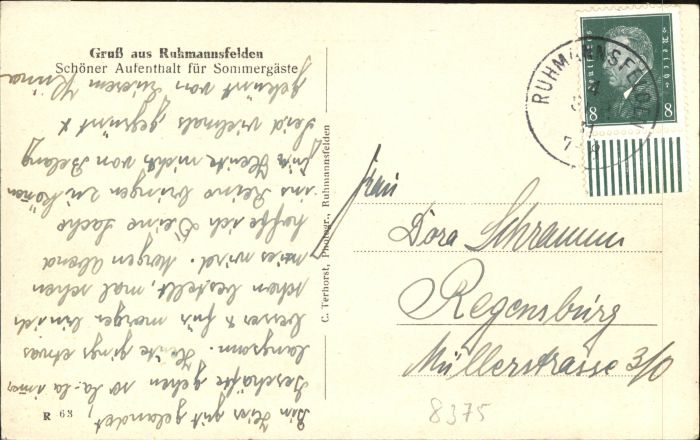 Gruß aus Ruhmannsfelden
Schöner Aufenthalt für Sommergäste
Bin hier gut gelandet,
Geschäfte gehen so la-la immer
langsam. Heute ging's etwas
besser & für morgen bin ich
schon bestellt, mal sehen
wie's wird. Morgen Abend
hoffe ich Deine Sache
ins Reine bringen zu können
für Heute nichts von Belang
Seid vielmals gegrüsst &
geküsst von
C. Terhorst, Photogr., Ruhmannsfelden
R 63
RUHMANNSFELDEN
7-8
Deutsches Reich
8 8
Frau
Dora Schramm
Regensburg
Müllerstrasse 3/0
8375